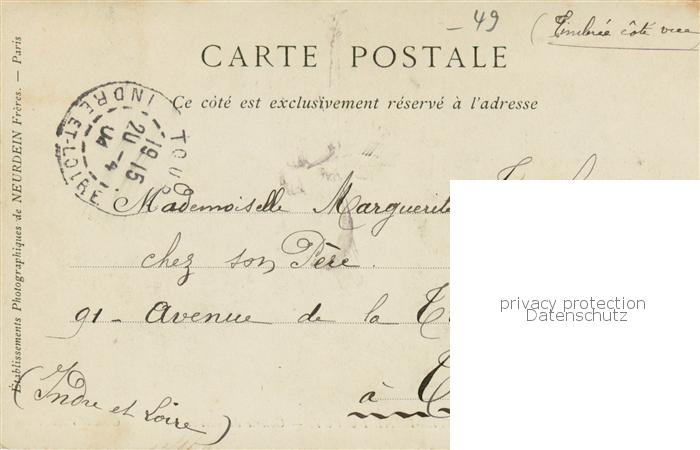 - 49
(Timbrée côté vue
CARTE POSTALE
Ce côté est exclusivement réservé à l'adresse
TOURS
INDRE-ET-LOIRE
19 15
20 - 4
04
Mademoiselle Marguerite
chez son Père.
91 - Avenue de la
à
(Indre et Loire)
Établissements Photographiques de NEURDEIN Frères. — Paris
privacy protection
Datenschutz